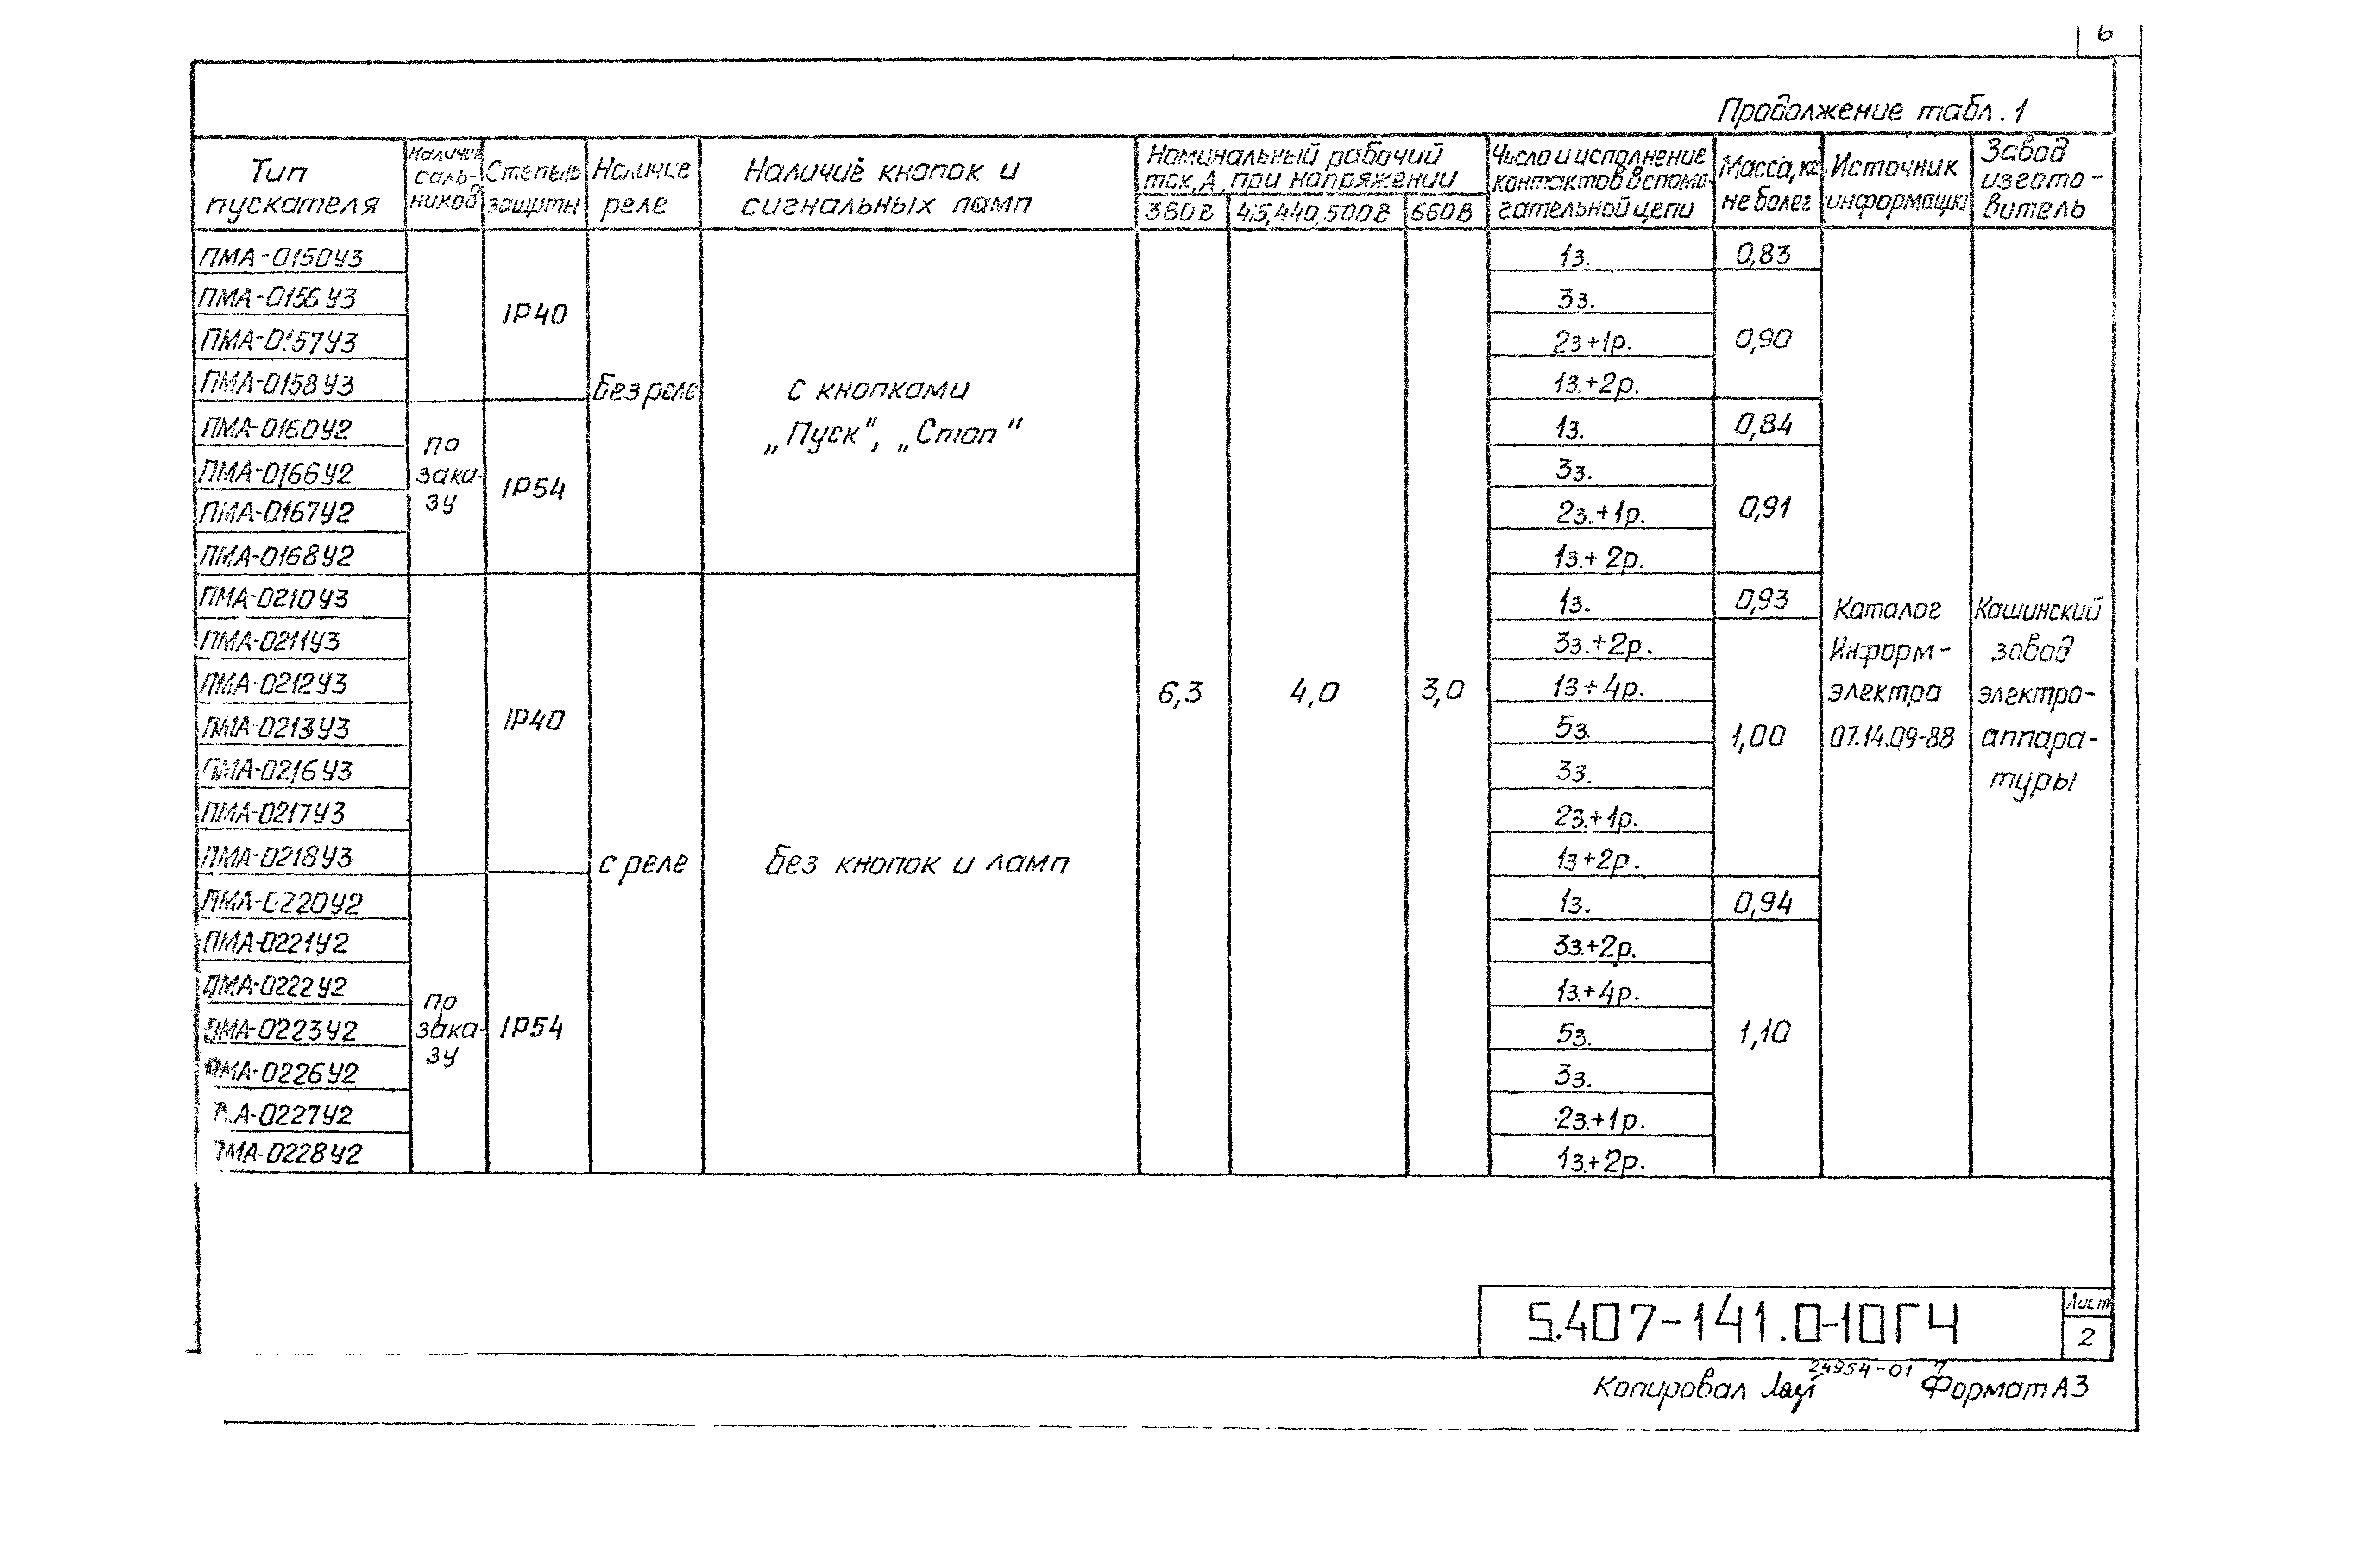 6
Продолжение табл. 1
Тип пускателя
Наличие сальников
Степень защиты
Наличие реле
Наличие кнопок и сигнальных ламп
Номинальный рабочий ток, А, при напряжении
380В 415,440,500В 660В
Число и исполнение контактов вспомогательной цепи
Масса, кг не более
Источник информации
Завод изготовитель
ПМА-0150У3 1з. 0,83
ПМА-0156У3 3з.
IP40
ПМА-0157У3 2з+1р. 0,90
ПМА-0158У3 1з.+2р.
без реле
с кнопками
„Пуск", „Стоп"
ПМА-0160У2 1з. 0,84
по зака-зу
ПМА-0166У2 3з.
IP54
ПМА-0167У2 2з.+1р. 0,91
ПМА-0168У2 1з.+2р.
ПМА-0210У3 1з. 0,93
ПМА-0211У3 3з.+2р.
ПМА-0212У3 1з+4р.
6,3 4,0 3,0
IP40
ПМА-0213У3 5з. 1,00
Каталог
Информ-
электро
07.14.09-88
Кашинский
завод
электро-
аппара-
туры
ПМА-0216У3 3з.
ПМА-0217У3 2з.+1р.
ПМА-0218У3 1з+2р.
с реле
без кнопок и ламп
ПМА-0220У2 1з. 0,94
ПМА-0221У2 3з.+2р.
ПМА-0222У2 1з.+4р.
по зака-зу
IP54
ПМА-0223У2 5з. 1,10
ПМА-0226У2 3з.
ПМА-0227У2 2з.+1р.
ПМА-0228У2 1з.+2р.
5.407-141.0-10ГЧ
Лист
2
24954-01 7
Копировал Формат А3